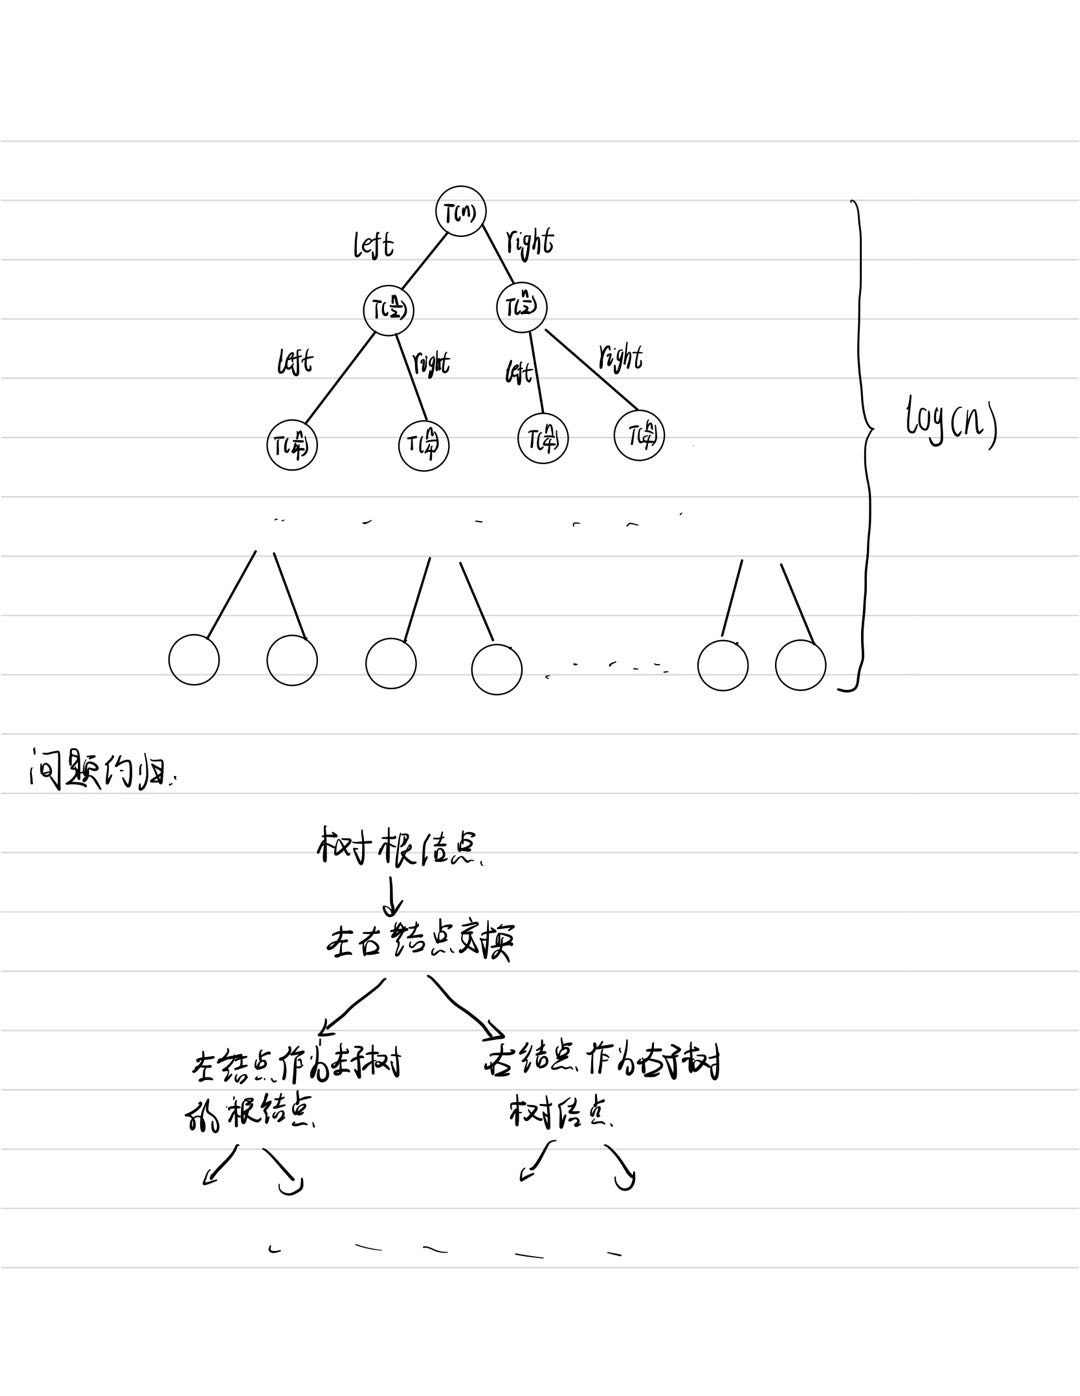 T(n)
left right
T(n/2) T(n/2)
left right left right
T(n/4) T(n/4) T(n/4) T(n/4)
log(n)
问题约归:
树根结点
左右结点交换
左结点作为左子树 右结点作为右子树
的根结点 树结点